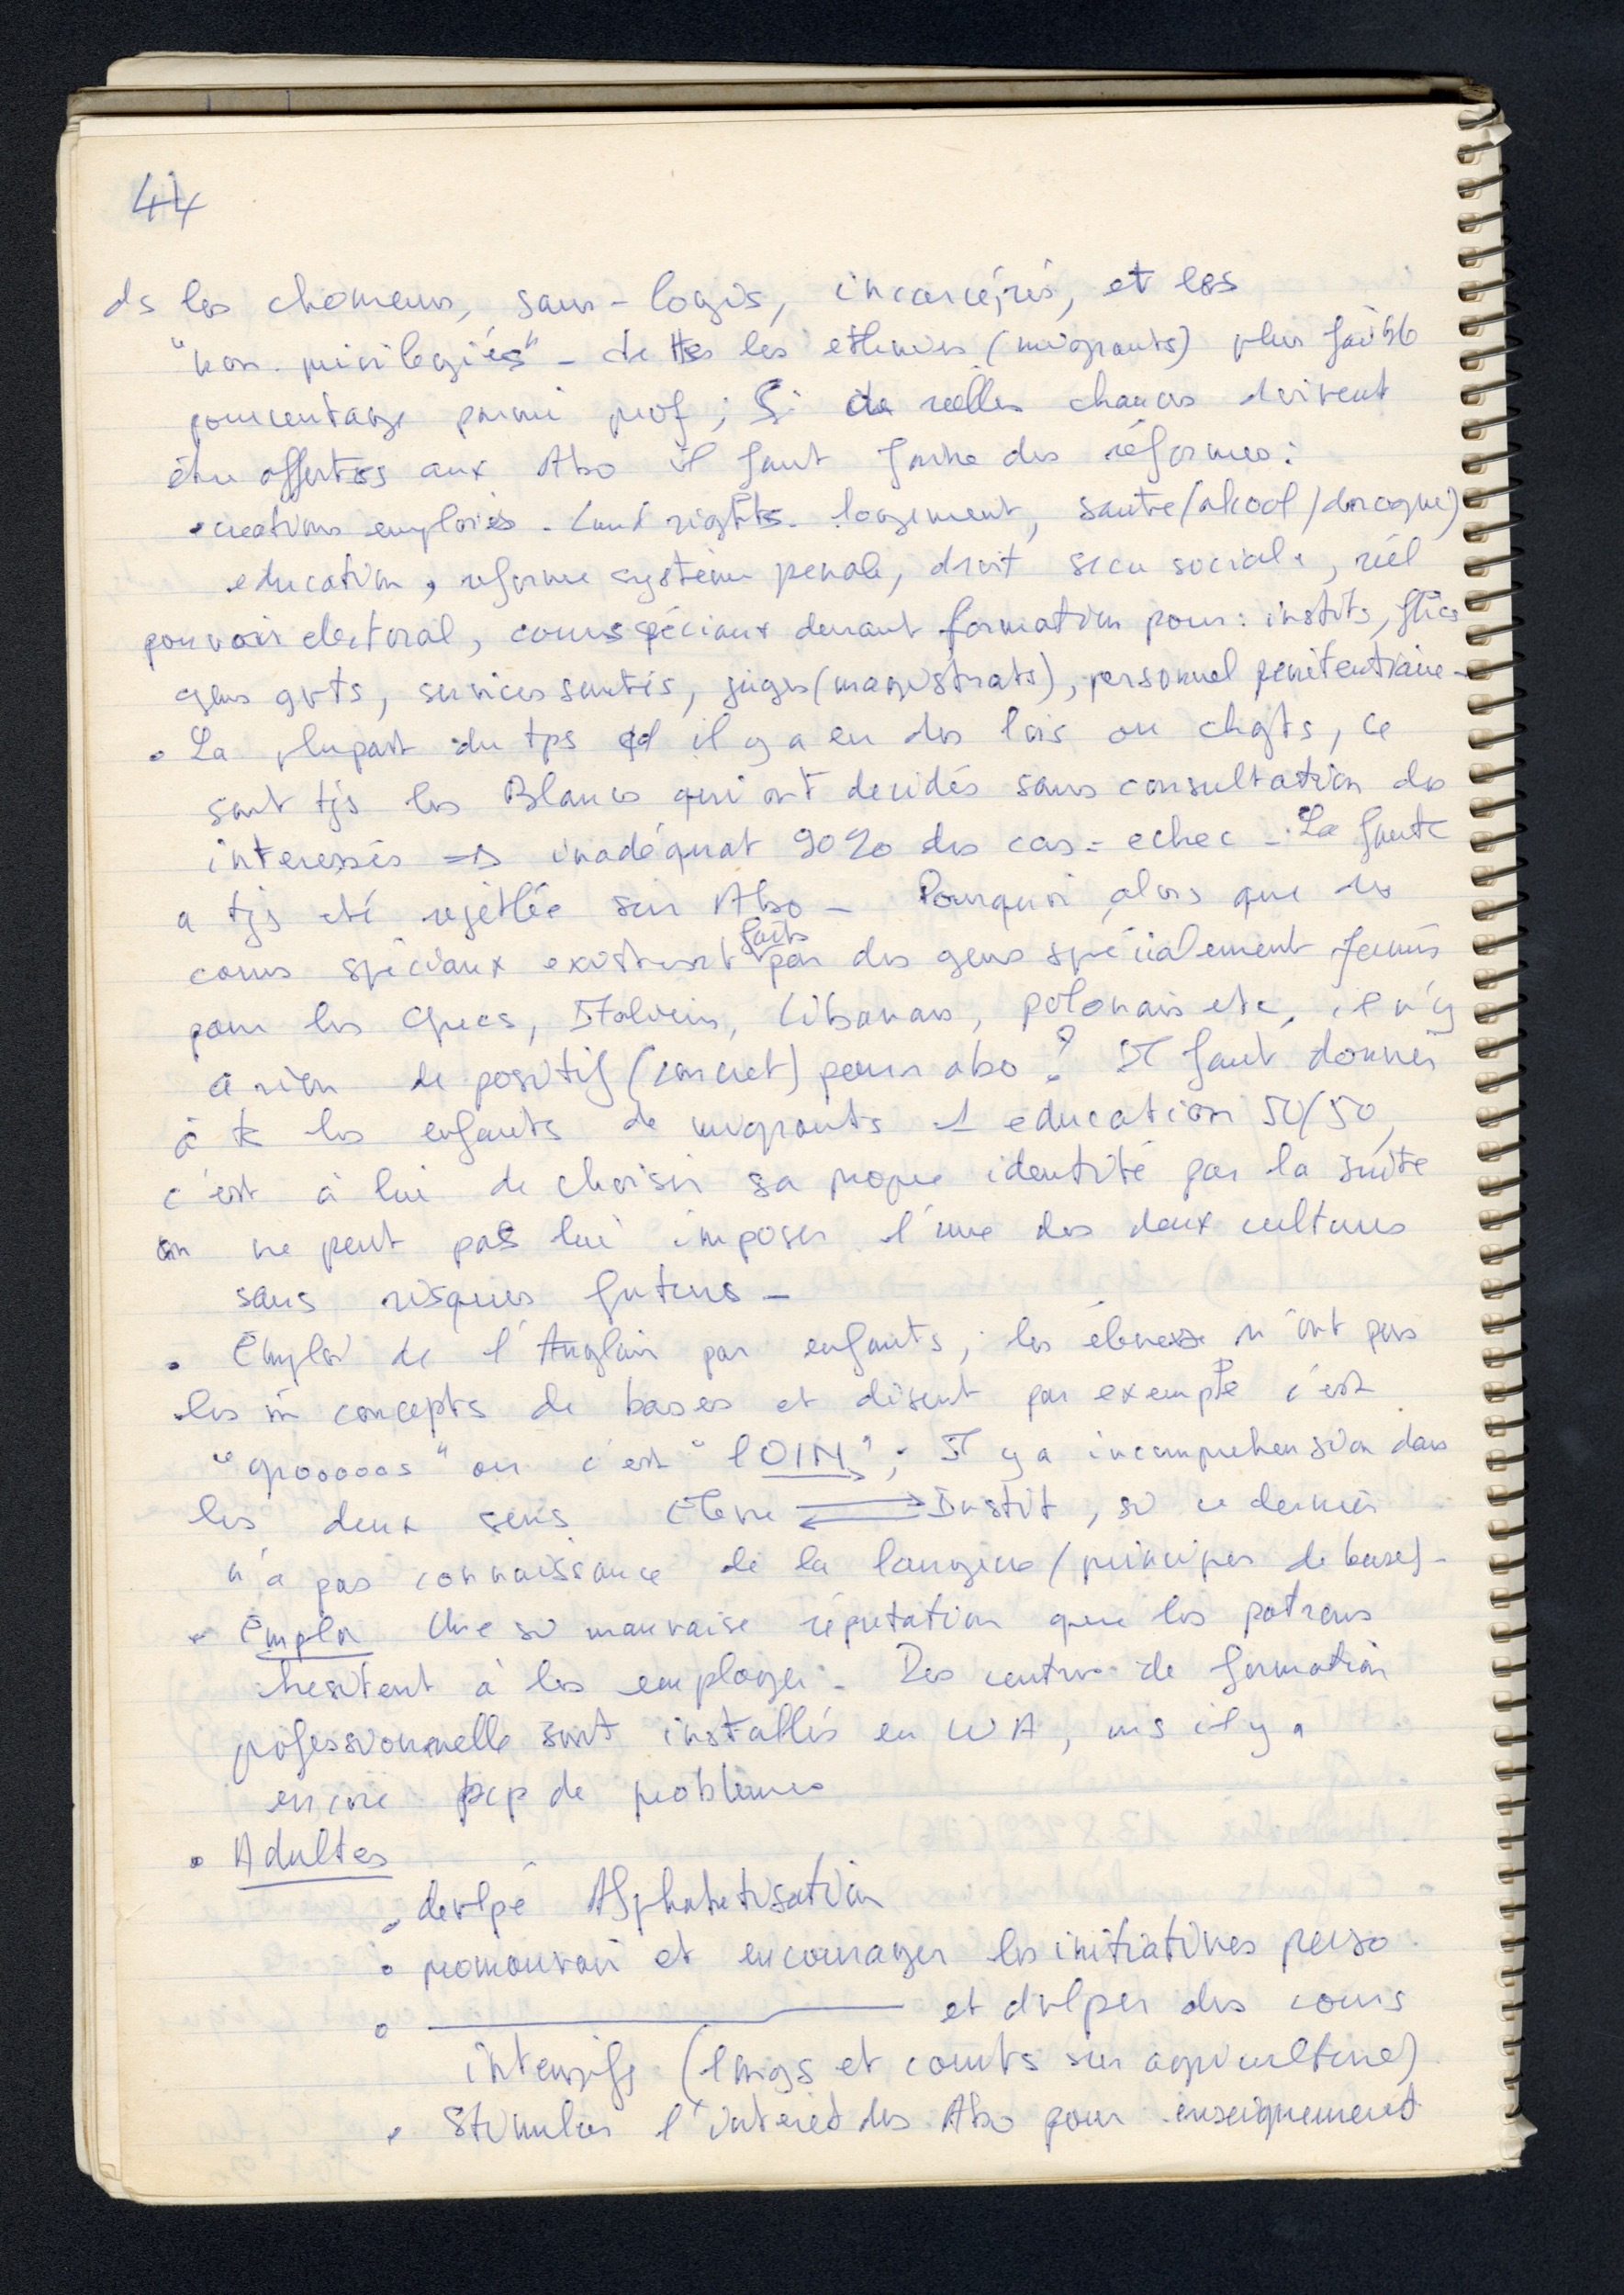 44
ds les chomeurs, sans-logis, incarcérés, et les
"non privilegiés" - de ttes les ethnies (migrants) plus faible
pourcentage parmi prof ; Si de réelles chances doivent
être offertes aux Abo il faut faire des réformes :
• creations emploies - Land rights - logement, santé (alcool / drogue)
education, reforme système penale, droit secu sociale, réel
pouvoir electoral, cours spéciaux durant formation pour : instits, flics
gens gvts, services santés, juges (magistrats), personnel penitentiaire -
• La plupart du tps qd il y a eu des lois ou chgts, ce
sont tjs les Blancs qui ont decidés sans consultation des
interessés => inadéquat 90% des cas = echec - La faute
a tjs eté rejetée sur Abo - Pourquoi alors que des
cours spéciaux existent faits par des gens spécialement formés
pour les Grecs, Italiens, Libanais, polonais etc, il n'y
a rien de positif (concret) pour abo ? Il faut donner
à ts les enfants de migrants 1 education 50/50,
c'est à lui de choisir sa propre identité par la suite
on ne peut pas lui imposer l'une des deux cultures
sans risques futurs -
• Emploi de l'Anglais par enfants ; les éleves n'ont pas
les m concepts de bases et disent par exemple c'est
"grooooos" ou c'est "lOIN" ; Il y a incomprehension dans
les deux sens Eleve ⇄ Instit, si ce dernier
n'a pas connaissance de la langue (principes de bases) -
• Emploi Une si mauvaise réputation que les patrons
hesitent à les employer - Des centres de formation
professionnelle sont installés en WA, ms il y a
encore bcp de problèmes
• Adultes
• devlpé Alphabetisation
• promouvoir et encourager les initiatives perso
• ———————— et dvlper des cours
intensifs (longs et courts sur agriculture)
• Stimuler l'interet des Abo pour enseignement